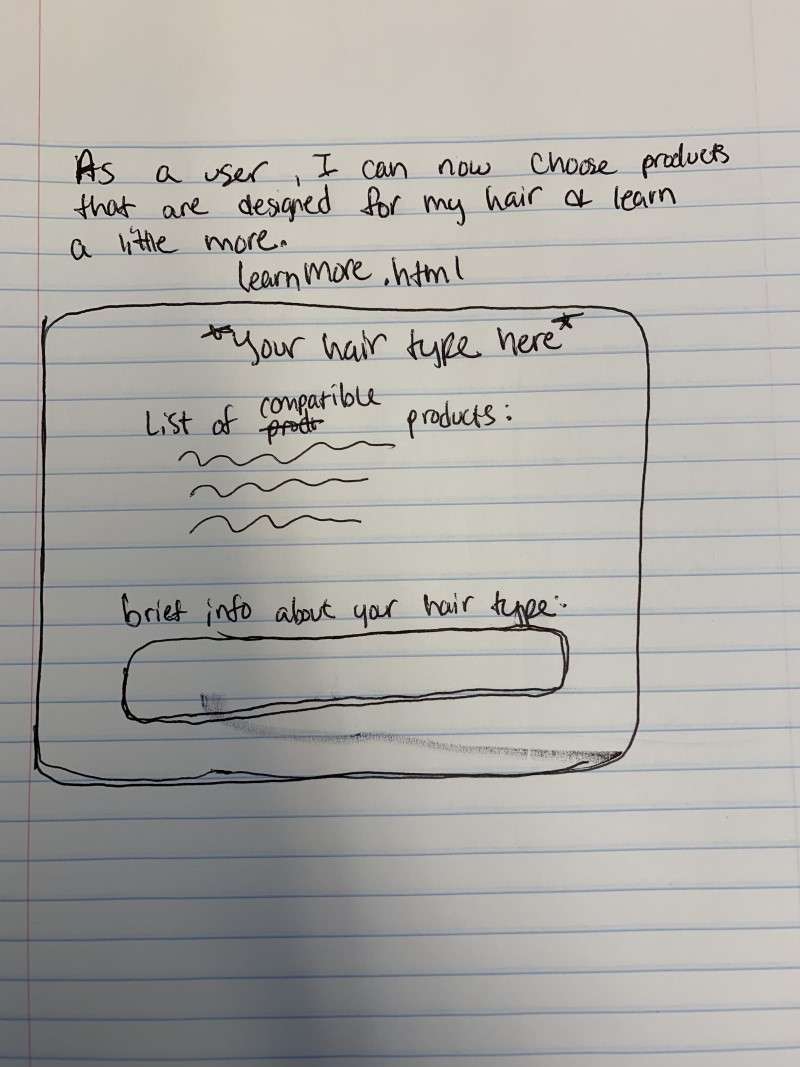 As a user, I can now choose products
that are designed for my hair & learn
a little more.
learnmore.html
*Your hair type here*
List of compatible products:
brief info about your hair type: